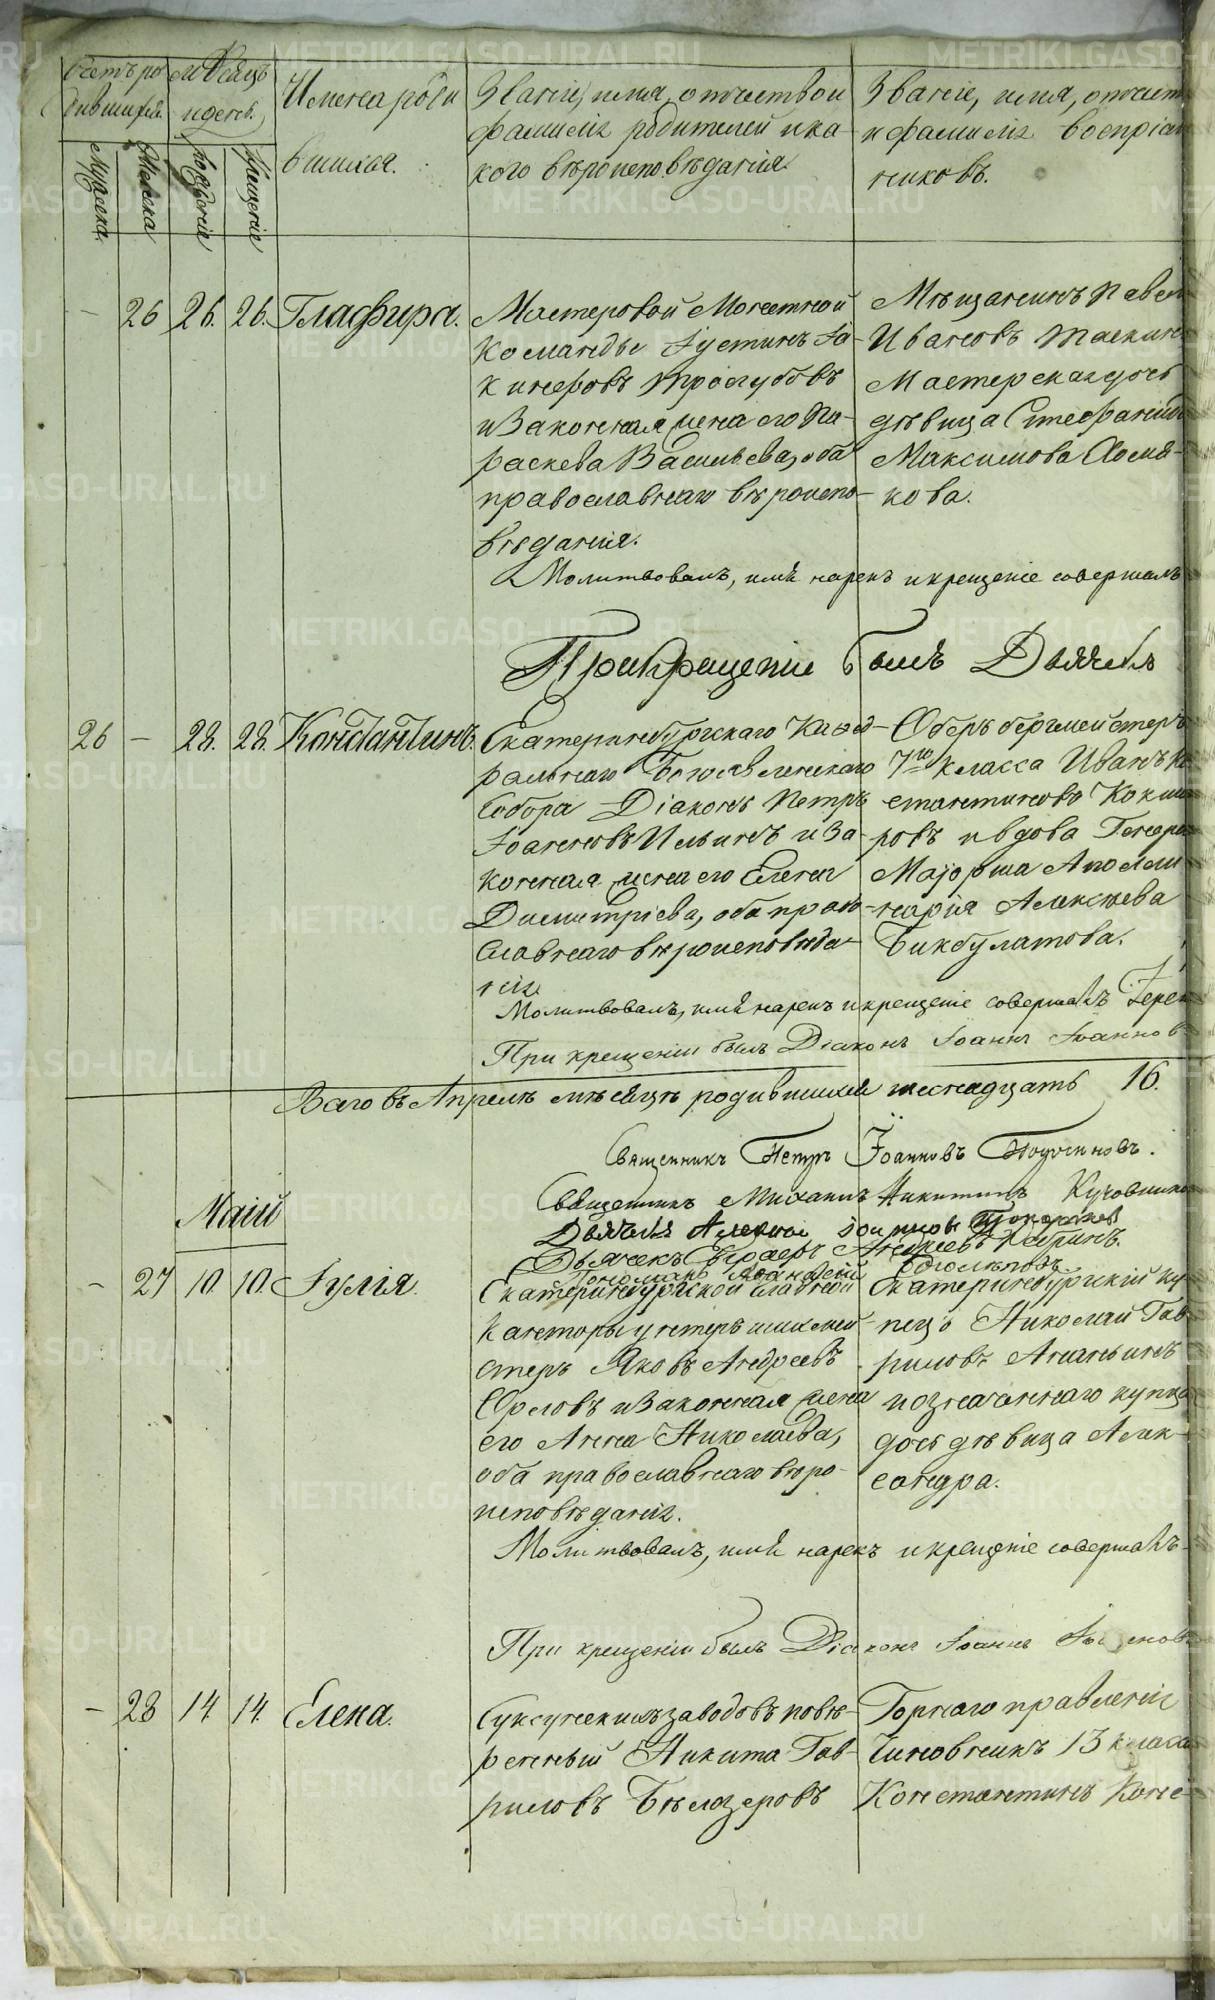 Счетъ ро
дившихся.
Мѣсяцъ
и день.
Мужеска
Женска
рожденія
крещенія
Имена роди
вшихся.
Званіе, имя, отчество и
фамилія родителей и ка-
кого вѣроисповѣданія
Званіе, имя, отчест
и фамилія воспріем
никовъ.
- 26 26. 26. Глафира.
Мастеровой Монетной
Команды Іустинъ Іа-
кинфовъ Трегубовъ
и законная жена его Па-
раскева Васильева, оба
православнаго вѣроиспо-
вѣданія.
Мѣщанинъ Павел
Ивановъ
Мастерская дочь
дѣвица Стефанида
Максимова Хомя-
кова.
Молитвовалъ, имя нарекъ и крещеніе совершалъ
При Крещеніи былъ Дьячекъ
26 - 28. 28. Константинъ.
Екатеринбургскаго Каѳед-
ральнаго Богоявленскаго
Собора Діаконъ Петръ
Іоанновъ Ильинъ и за-
конная жена его Елена
Димитріева, оба право-
славнаго вѣроисповѣда-
нія
Оберъ бергмейстеръ
7го класса Иванъ Ко
нстантиновъ Кокша
ровъ и вдова Генерал
Маіорша Аполли-
нарія Алексѣева
Бикбулатова.
Молитвовалъ, имя нарекъ и крещеніе совершалъ Іерей
При крещеніи былъ Діаконъ Іоаннъ Іоаннов
Всего въ Апрелѣ мѣсяцѣ родившихся шестнадцать 16.
Священникъ Петръ Іоанновъ
Священникъ Михаилъ Никитинъ
Дьячекъ Алексѣй
Дьячекъ Андреевъ
Пономарь
Маій
- 27 10. 10. Іулія.
Екатеринбургской главной
Конторы унтеръ шихмей-
стеръ Яковъ Андреевъ
Орловъ и законная жена
его Анна Николаева,
оба православнаго вѣро-
исповѣданія.
Екатеринбургскій ку
пецъ Николай Гав-
риловъ Ананьинъ
и означеннаго купца
дочь дѣвица Алек-
сандра.
Молитвовалъ, имя нарекъ и крещеніе совершалъ-
При крещеніи былъ Діаконъ Іоаннъ
- 28 14 14. Елена.
Суксунскихъ заводовъ повѣ-
ренный Никита Гав-
риловъ Бѣлозеровъ
Горнаго правленія
Чиновникъ 13 класса
Константинъ Конс-
METRIKI.GASO-URAL.RU